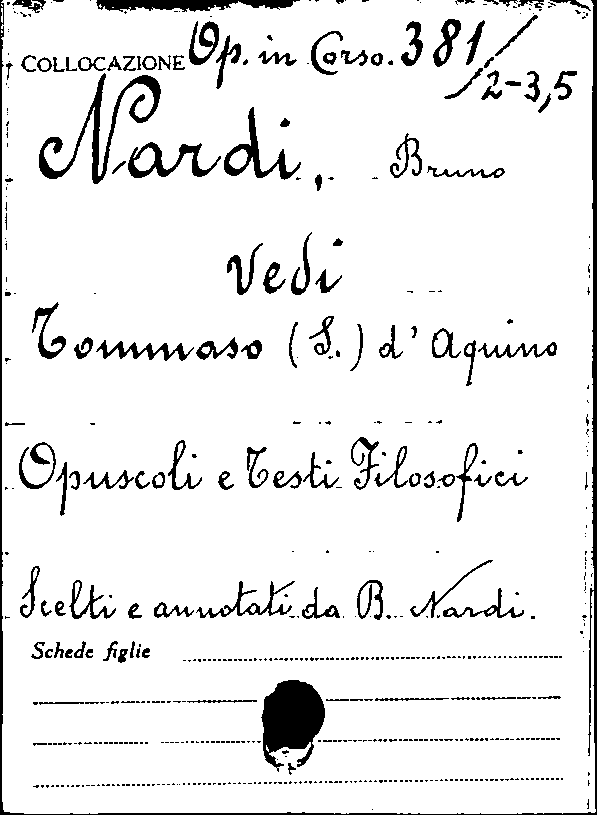 COLLOCAZIONE Op. in Corso. 381/2-3,5
Nardi, Bruno
Vedi
Tommaso (S.) d'Aquino
Opuscoli e Testi Filosofici
Scelti e annotati da B. Nardi.
Schede figlie